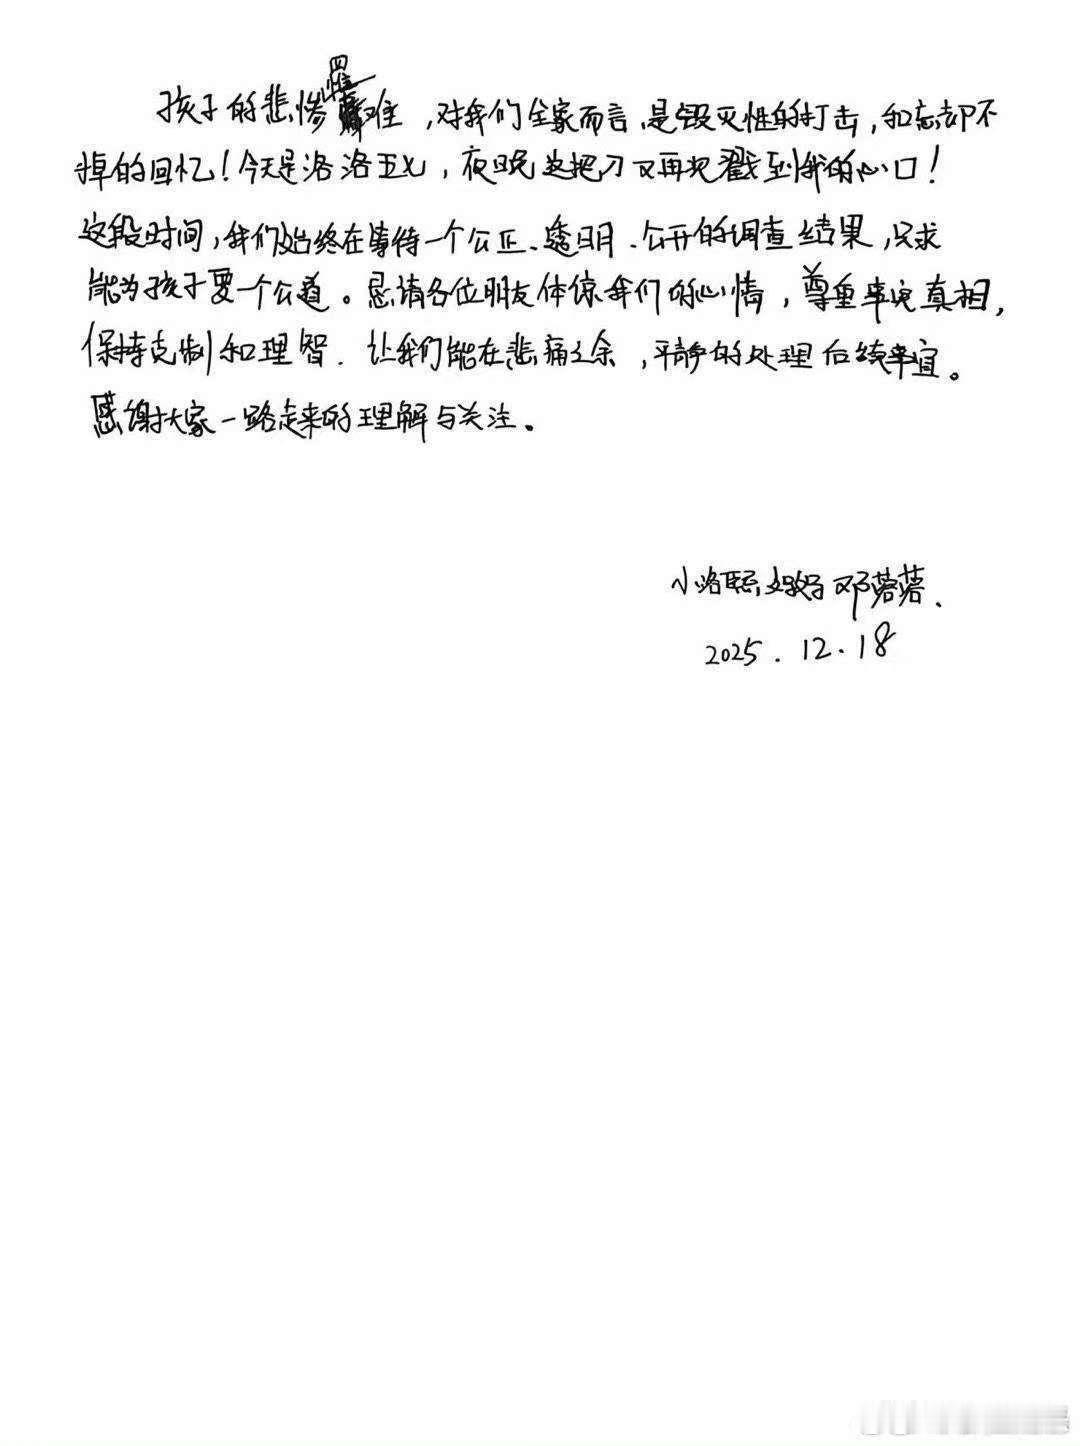 孩子的悲惨罹难，对我们全家而言，是毁灭性的打击，和忘却不
掉的回忆！今天是洛洛五七，夜晚这把刀又再次戳到我的心口！
这段时间，我们始终在等待一个公正、透明、公开的调查结果，只求
能为孩子要一个公道。恳请各位朋友体谅我们的心情，尊重事实真相，
保持克制和理智．让我们能在悲痛之余，平静的处理后续事宜。
感谢大家一路走来的理解与关注。
小洛熙妈妈邓蓉蓉、
2025．12．18